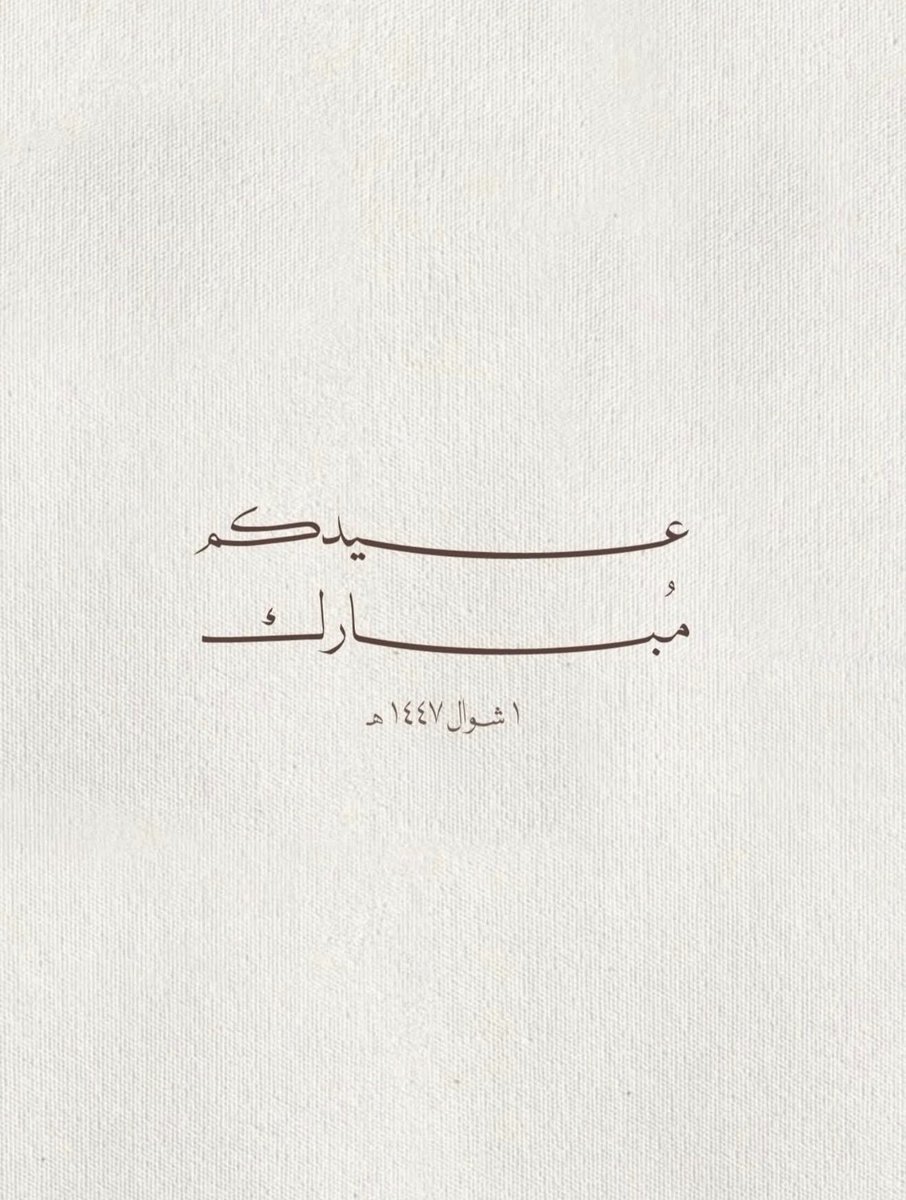 عيدكم
مُبارك
١ شوال ١٤٤٧ هـ